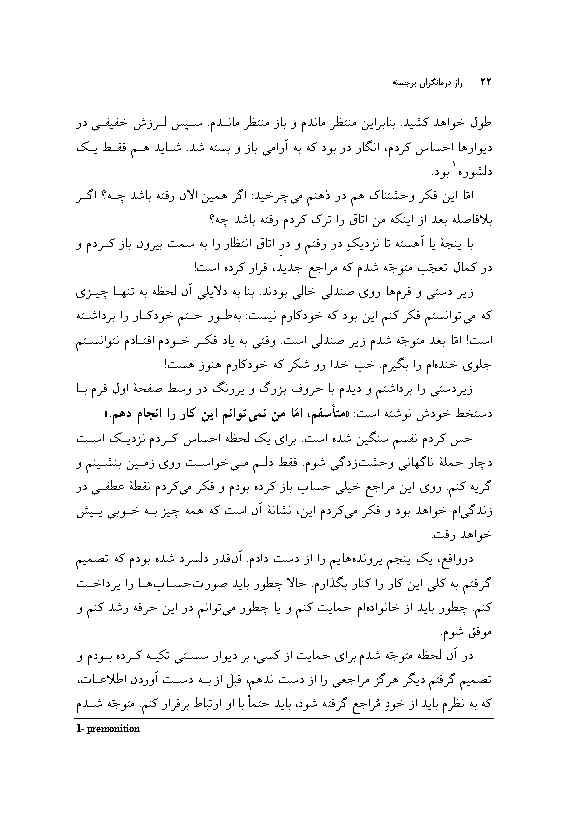 ۲۲ راز درمانگران برجسته
طول خواهد کشید. بنابراین منتظر ماندم و باز منتظر ماندم. سپس لرزش خفیفی در
دیوارها احساس کردم، انگار در بود که به آرامی باز و بسته شد. شاید هم فقط یک
دلشوره۱ بود.
امّا این فکر وحشتناک هم در ذهنم می‌چرخید: اگر همین الان رفته باشد چه؟ اگر
بلافاصله بعد از اینکه من اتاق را ترک کردم رفته باشد چه؟
با پنجۀ پا آهسته تا نزدیکِ در رفتم و درِ اتاق انتظار را به سمت بیرون باز کردم و
در کمال تعجب متوّجه شدم که مراجع جدید، قرار کرده است!
زیر دستی و فرم‌ها روی صندلی خالی بودند. بنا به دلایلی آن لحظه به تنها چیزی
که می‌توانستم فکر کنم این بود که خودکارم نیست: به‌طور حتم خودکار را برداشته
است! امّا بعد متوّجه شدم زیر صندلی است. وقتی به یاد فکر خودم افتادم نتوانستم
جلوی خنده‌ام را بگیرم. خب خدا رو شکر که خودکارم هنوز هست!
زیردستی را برداشتم و دیدم با حروف بزرگ و پررنگ در وسط صفحۀ اول فرم با
دستخط خودش نوشته است: «متأسفم، امّا من نمی‌توانم این کار را انجام دهم.»
حس کردم نفسم سنگین شده است. برای یک لحظه احساس کردم نزدیک است
دچار حملۀ ناگهانی وحشت‌زدگی شوم. فقط دلم می‌خواست روی زمین بنشینم و
گریه کنم. روی این مراجع خیلی حساب باز کرده بودم و فکر می‌کردم نقطۀ عطفی در
زندگی‌ام خواهد بود و فکر می‌کردم این، نشانۀ آن است که همه چیز به خوبی پیش
خواهد رفت.
درواقع، یک پنجم پرونده‌هایم را از دست دادم. آن‌قدر دلسرد شده بودم که تصمیم
گرفتم به کلی این کار را کنار بگذارم. حالا چطور باید صورت‌حساب‌ها را پرداخت
کنم. چطور باید از خانواده‌ام حمایت کنم و یا چطور می‌توانم در این حرفه رشد کنم و
موفق شوم.
در آن لحظه متوّجه شدم برای حمایت از کسی، بر دیوار سستی تکیه کرده بودم و
تصمیم گرفتم دیگر هرگز مراجعی را از دست ندهم، قبل از به دست آوردن اطلاعات،
که به نظرم باید از خودِ مُراجع گرفته شود، باید حتماً با او ارتباط برقرار کنم. متوّجه شدم
1- premonition